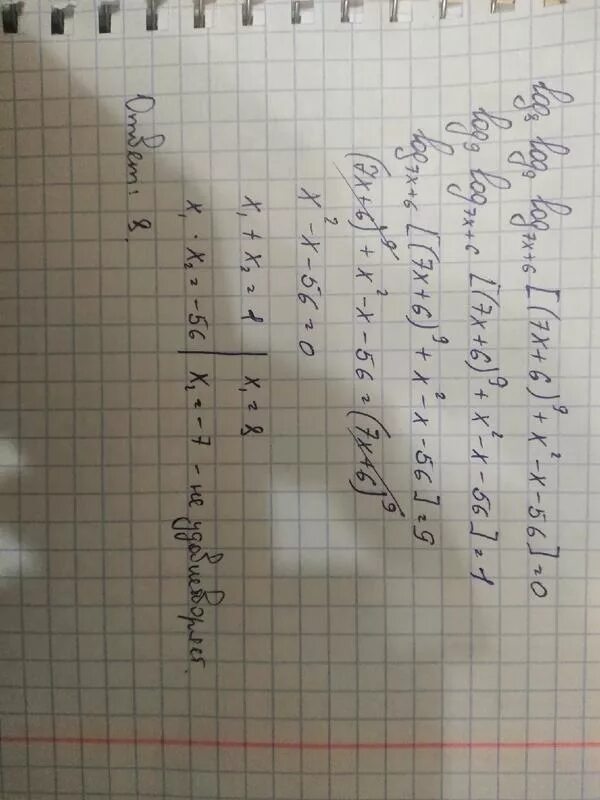 log₈ log₉ log₇ₓ₊₆ [(7x+6)⁹ + x² - x - 56] = 0
log₉ log₇ₓ₊₆ [(7x+6)⁹ + x² - x - 56] = 1
log₇ₓ₊₆ [(7x+6)⁹ + x² - x - 56] = 9
(7x+6)⁹ + x² - x - 56 = (7x+6)⁹
x² - x - 56 = 0
x₁ + x₂ = 1 | x₁ = 8
x₁ · x₂ = -56 | x₂ = -7 - не удовлетворяет.
Ответ: 8.